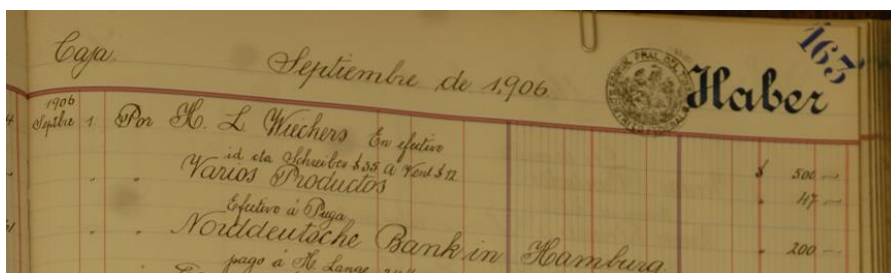 Caja. Septiembre de 1,906. Haber 163
1906
Septbre 1 Por H. L. Wiechers En efectivo $ 500 —
id cta Schreiber $35 a Vent $12 " 47 —
" " Varios Productos
Efectivo á Puga " 200 —
" " Norddeutsche Bank in Hamburg
pago á H. Lange